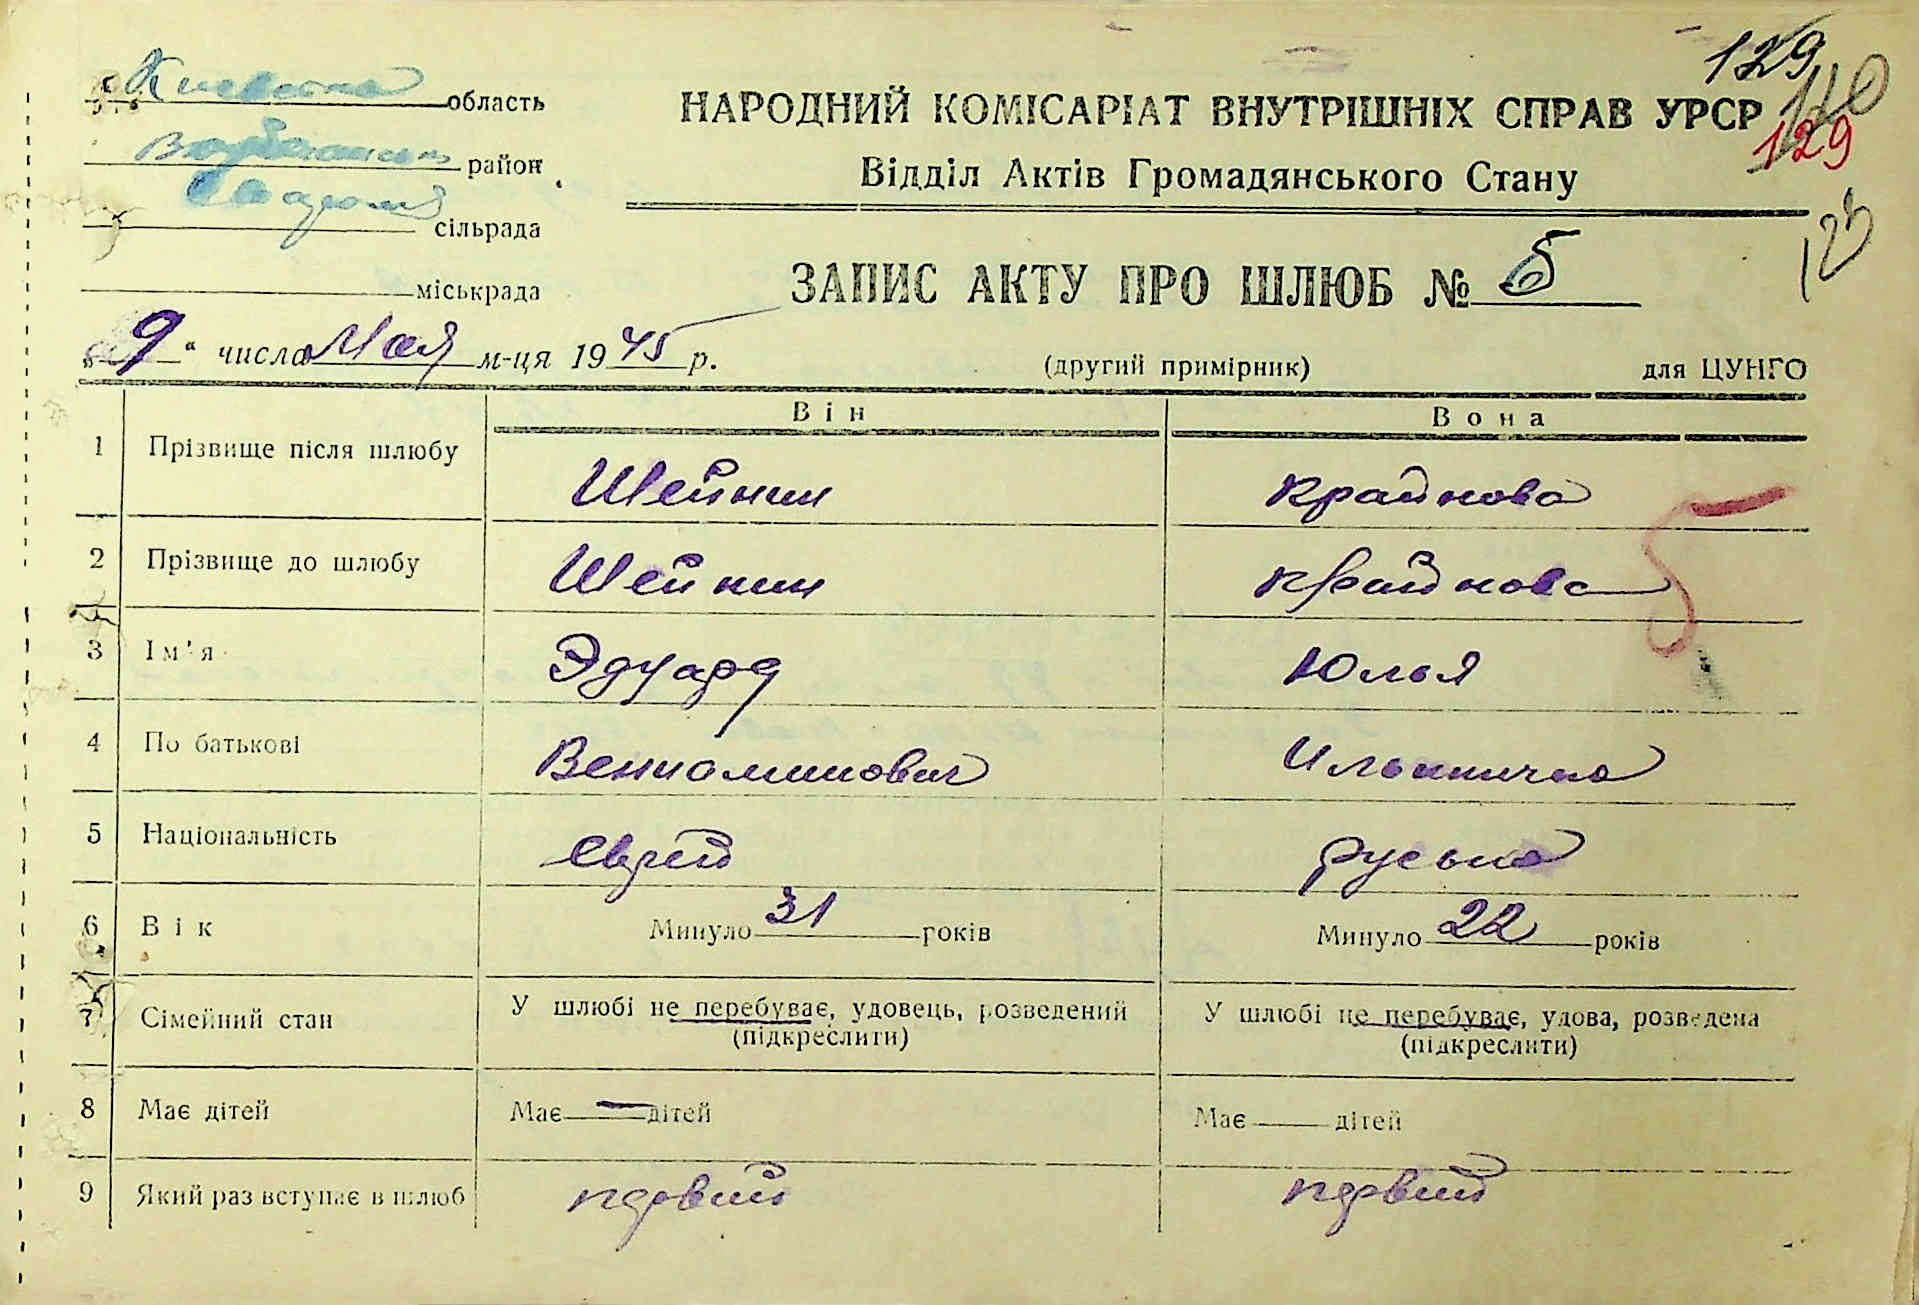 129
140
129
123
Київська область
район
сільрада
міськрада
НАРОДНИЙ КОМІСАРІАТ ВНУТРІШНІХ СПРАВ УРСР
Відділ Актів Громадянського Стану
ЗАПИС АКТУ ПРО ШЛЮБ № 5
„9“ числа Мая м-ця 1945 р.
(другий примірник) для ЦУНГО
Він Вона
1 Прізвище після шлюбу Шейнин Крайнова
2 Прізвище до шлюбу Шейнин Крайнова
3 Ім'я Эдуард Юлья
4 По батькові Вениаминович Ильинична
5 Національність Еврей руська
6 Вік Минуло 31 років Минуло 22 років
7 Сімейний стан У шлюбі не перебуває, удовець, розведений У шлюбі не перебуває, удова, розведена
(підкреслити) (підкреслити)
8 Має дітей Має — дітей Має дітей
9 Який раз вступає в шлюб первий первий